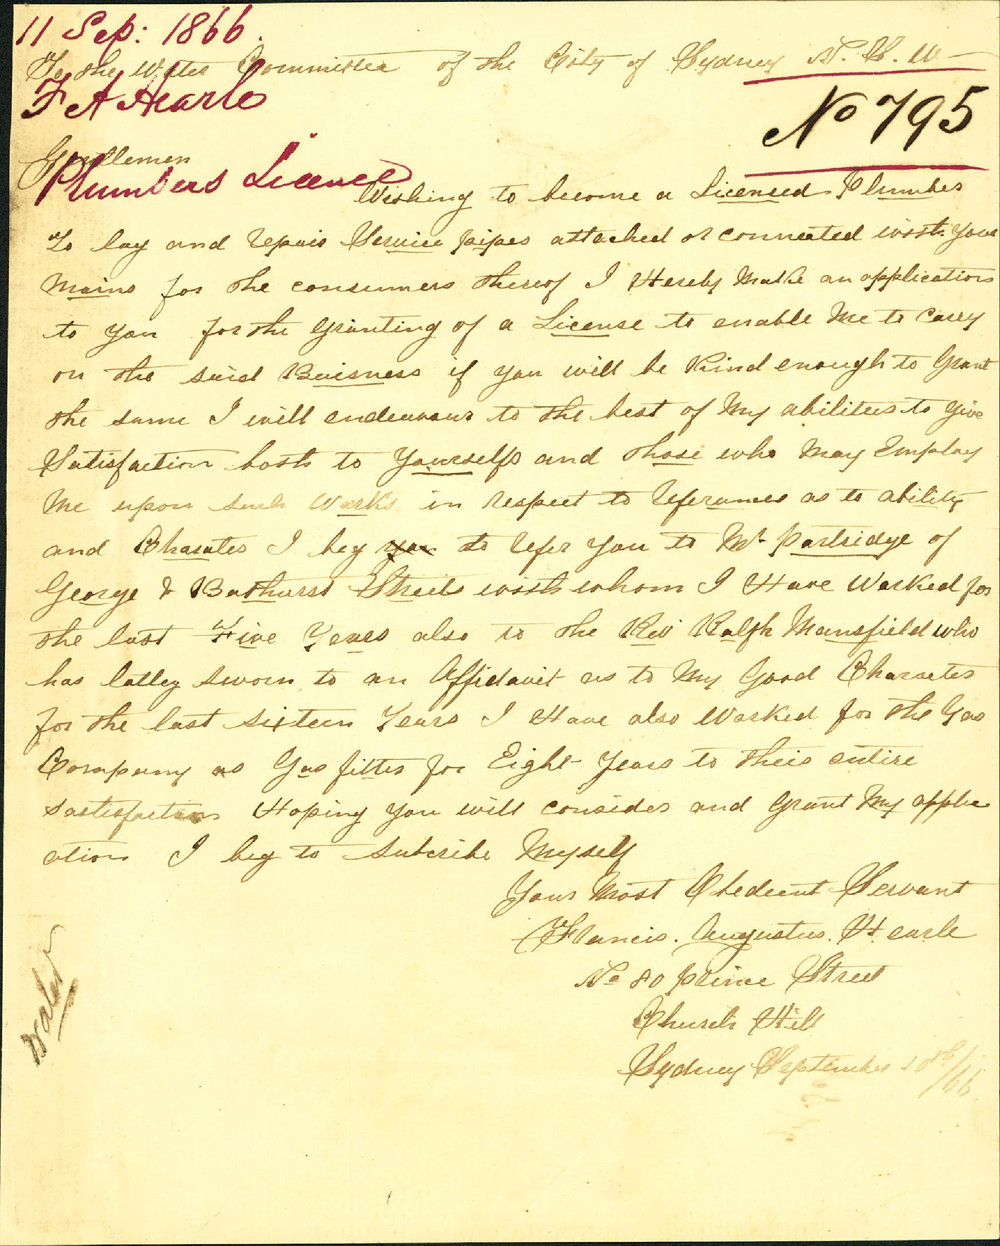 11 Sep: 1866.
To the Water Committee of the City of Sydney N. S. W—
F A Hearle
No 795
Gentlemen
Plumbers Licence
Wishing to become a Licensed Plumber
To lay and repair Service pipes attached or connected with your
Mains for the consumers thereof I Hereby Make an application
to you for the granting of a License to enable Me to Carry
on the said Buisness if you will be Kind enough to Grant
the same I will endeavour to the best of My abilities to give
Satisfaction both to Yourselfs and those who May Employ
Me upon such Works in respect to referances as to ability
and Charater I beg you to refer you to Mr Partridge of
George & Bathurst Streets with whom I Have Worked for
the last Five Years also to the Revd Ralph Mansfield who
has latley sworn to an Affidavit as to My Good Character
for the last sixteen Years I Have also Worked for the Gas
Company as Gas fitter for Eight Years to their entire
sastisfaction Hoping you will consider and grant My applic
ation I beg to Subcribe Myself
Your Most Obedient Servant
Francis. Augustus. Hearle
No 80 prince Street
Church Hill
Sydney September 10th/66
Water